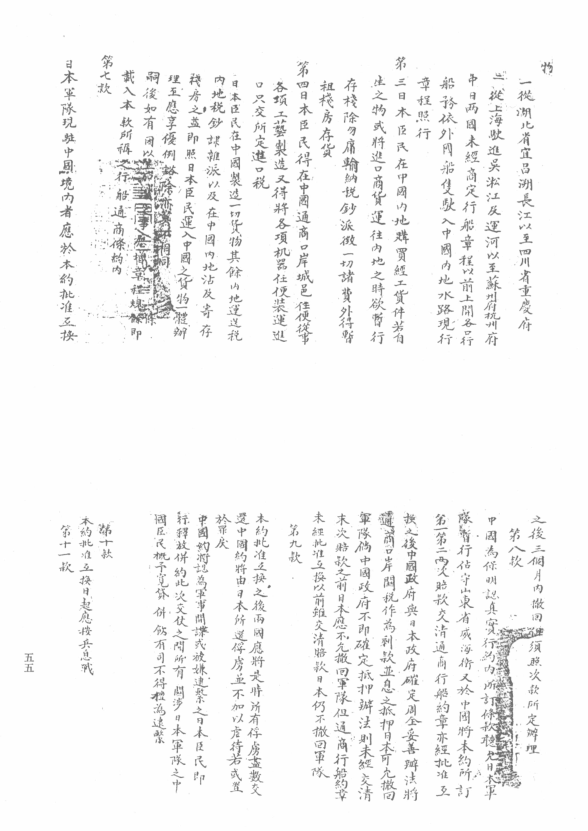 物
一從湖北省宜昌溯長江以至四川省重慶府
二從上海駛進吳淞江及運河以至蘇州府杭州府
中日兩國未經商定行船章程以前上開各口行
船務依外國船隻駛入中國內地水路現行
章程照行
第三日本臣民在中國內地購買經工貨件若自
生之物或將進口商貨運往內地之時欲暫行
存棧除勿庸輸納稅鈔派徵一切諸費外得暫
租棧房存貨
第四日本臣民得在中國通商口岸城邑任便從事
各項工藝製造又得將各項机器任便裝運進
口只交所定進口稅
日本臣民在中國製造一切貨物其餘內地運送稅
內地稅鈔課雜派以及在中國內地沾及寄存
棧房之益即照日本臣民運入中國之貨物一體辦
理至應享優例豁除亦莫不相同
嗣後如有因以上加讓之事應增章程條即
載入本款所稱之行船通商條約內
第七款
日本軍隊現駐中國境內者應於本約批准互換
之後三個月內撤回但須照次款所定辦理
第八款
中國為保明認真實行約內所訂條款聽允日本軍
隊暫行佔守山東省威海衛又於中國將本約所訂
第一第二兩次賠款交清通商行船約章亦經批准互
換之後中國政府與日本政府確定周全妥善辦法將
通商口岸關稅作為剩款並息之抵押日本可允撤回
軍隊倘中國政府不即確定抵押辦法則未經交清
末次賠款之前日本應不允撤回軍隊但通商行船約章
未經批准互換以前雖交清賠款日本仍不撤回軍隊
第九款
本約批准互換之後兩國應將是時所有俘虜盡數交
還中國約將由日本所還俘虜並不加以虐待若或置
於罪戾
中國約將認為軍事間諜或被嫌逮繫之日本臣民即
行釋放併約此次交仗之間所有關涉日本軍隊之中
國臣民概予寬貸併飭有司不得擅為逮繫
第十款
本約批准互換日起應按兵息戰
第十一款
五五